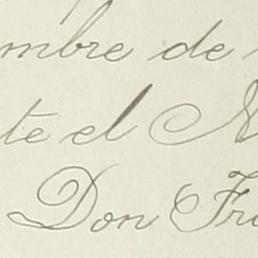 mbre de
te el
Don Fr